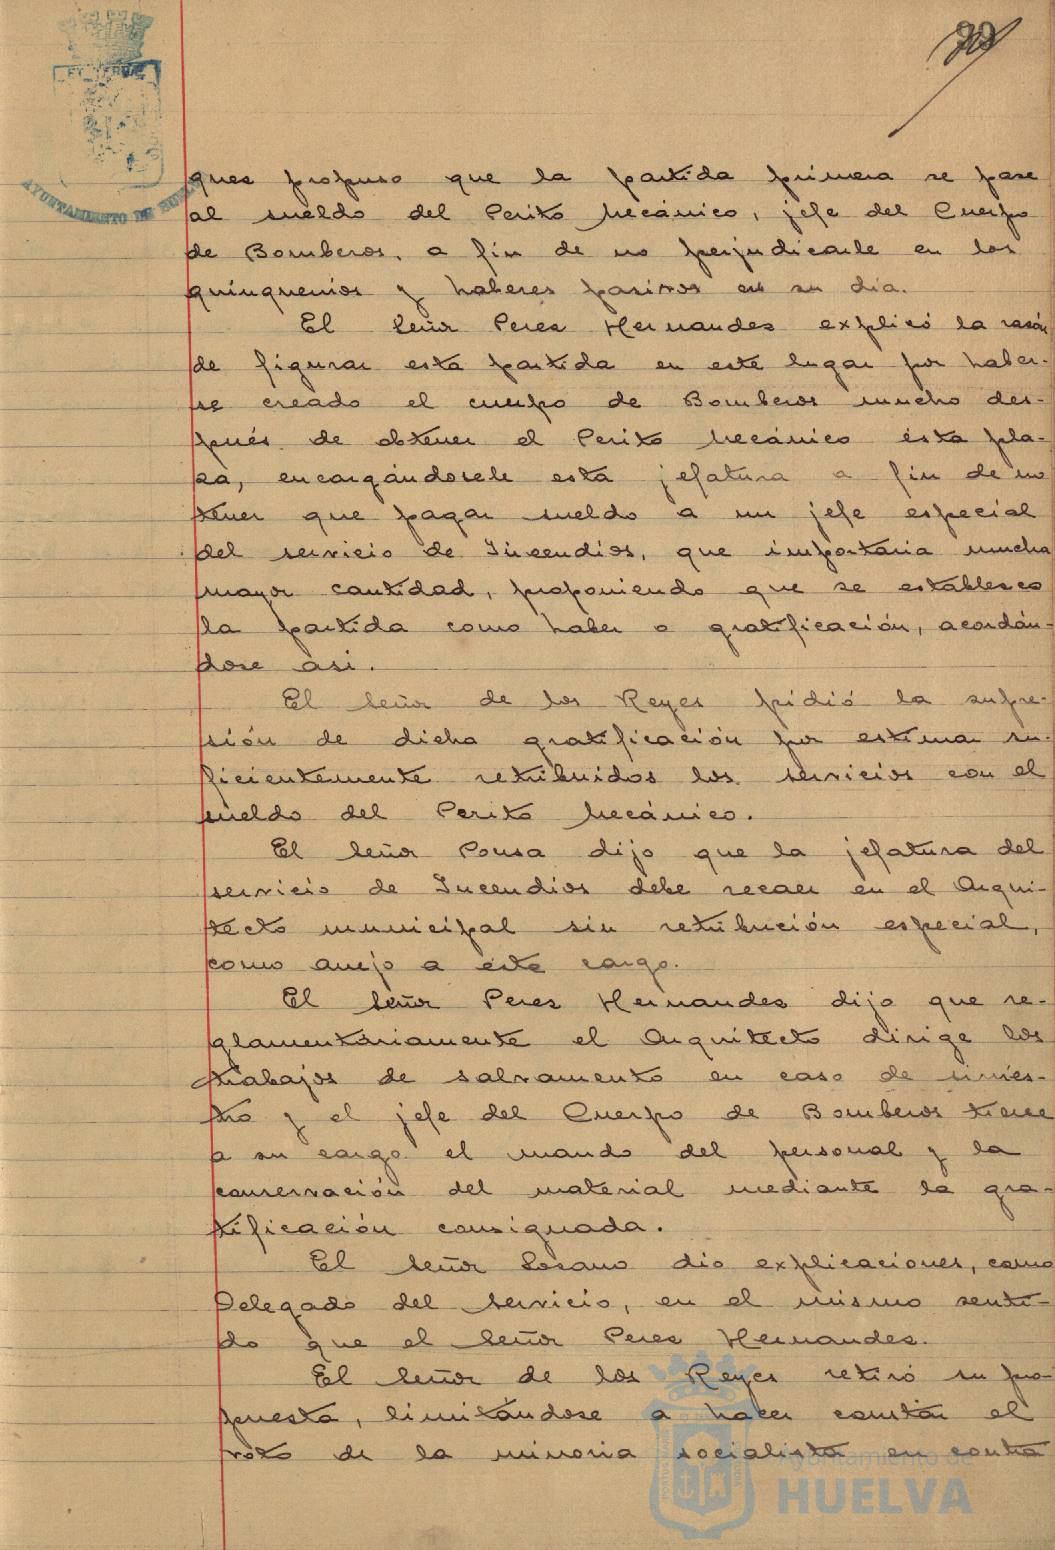 AYUNTAMIENTO DE HUELVA
ques propuso que la partida primera se pase
al sueldo del Perito Mecánico, jefe del Cuerpo
de Bomberos, a fin de no perjudicarle en los
quinquenios y haberes pasivos en su dia.
El Señor Peres Hernandes explicó la rasón
de figurar esta partida en este lugar por haber-
se creado el cuerpo de Bomberos mucho des-
pués de obtener el Perito Mecánico ésta pla-
sa, encargándosele esta jefatura a fin de no
tener que pagar sueldo a un jefe especial
del servicio de Incendios, que importaria mucha
mayor cantidad, proponiendo que se establesca
la partida como haber o gratificación, acordán-
dose asi.
El Señor de los Reyes pidió la supre-
sión de dicha gratificación por estimar su-
ficientemente retribuidos los servicios con el
sueldo del Perito Mecánico.
El Señor Pousa dijo que la jefatura del
servicio de Incendios debe recaer en el Arqui-
tecto municipal sin retribución especial,
como anejo a éste cargo.
El Señor Peres Hernandes dijo que re-
glamentariamente el Arquitecto dirige los
trabajos de salvamento en caso de sinies-
tro y el jefe del Cuerpo de Bomberos tiene
a su cargo el mando del personal y la
conservación del material mediante la gra-
tificación consignada.
El Señor Losano dio explicaciones, como
Delegado del servicio, en el mismo senti-
do que el Señor Peres Hernandes.
El Señor de los Reyes retiró su pro-
puesta, limitándose a hacer constar el
voto de la minoria socialista en contra
Ayuntamiento de
HUELVA